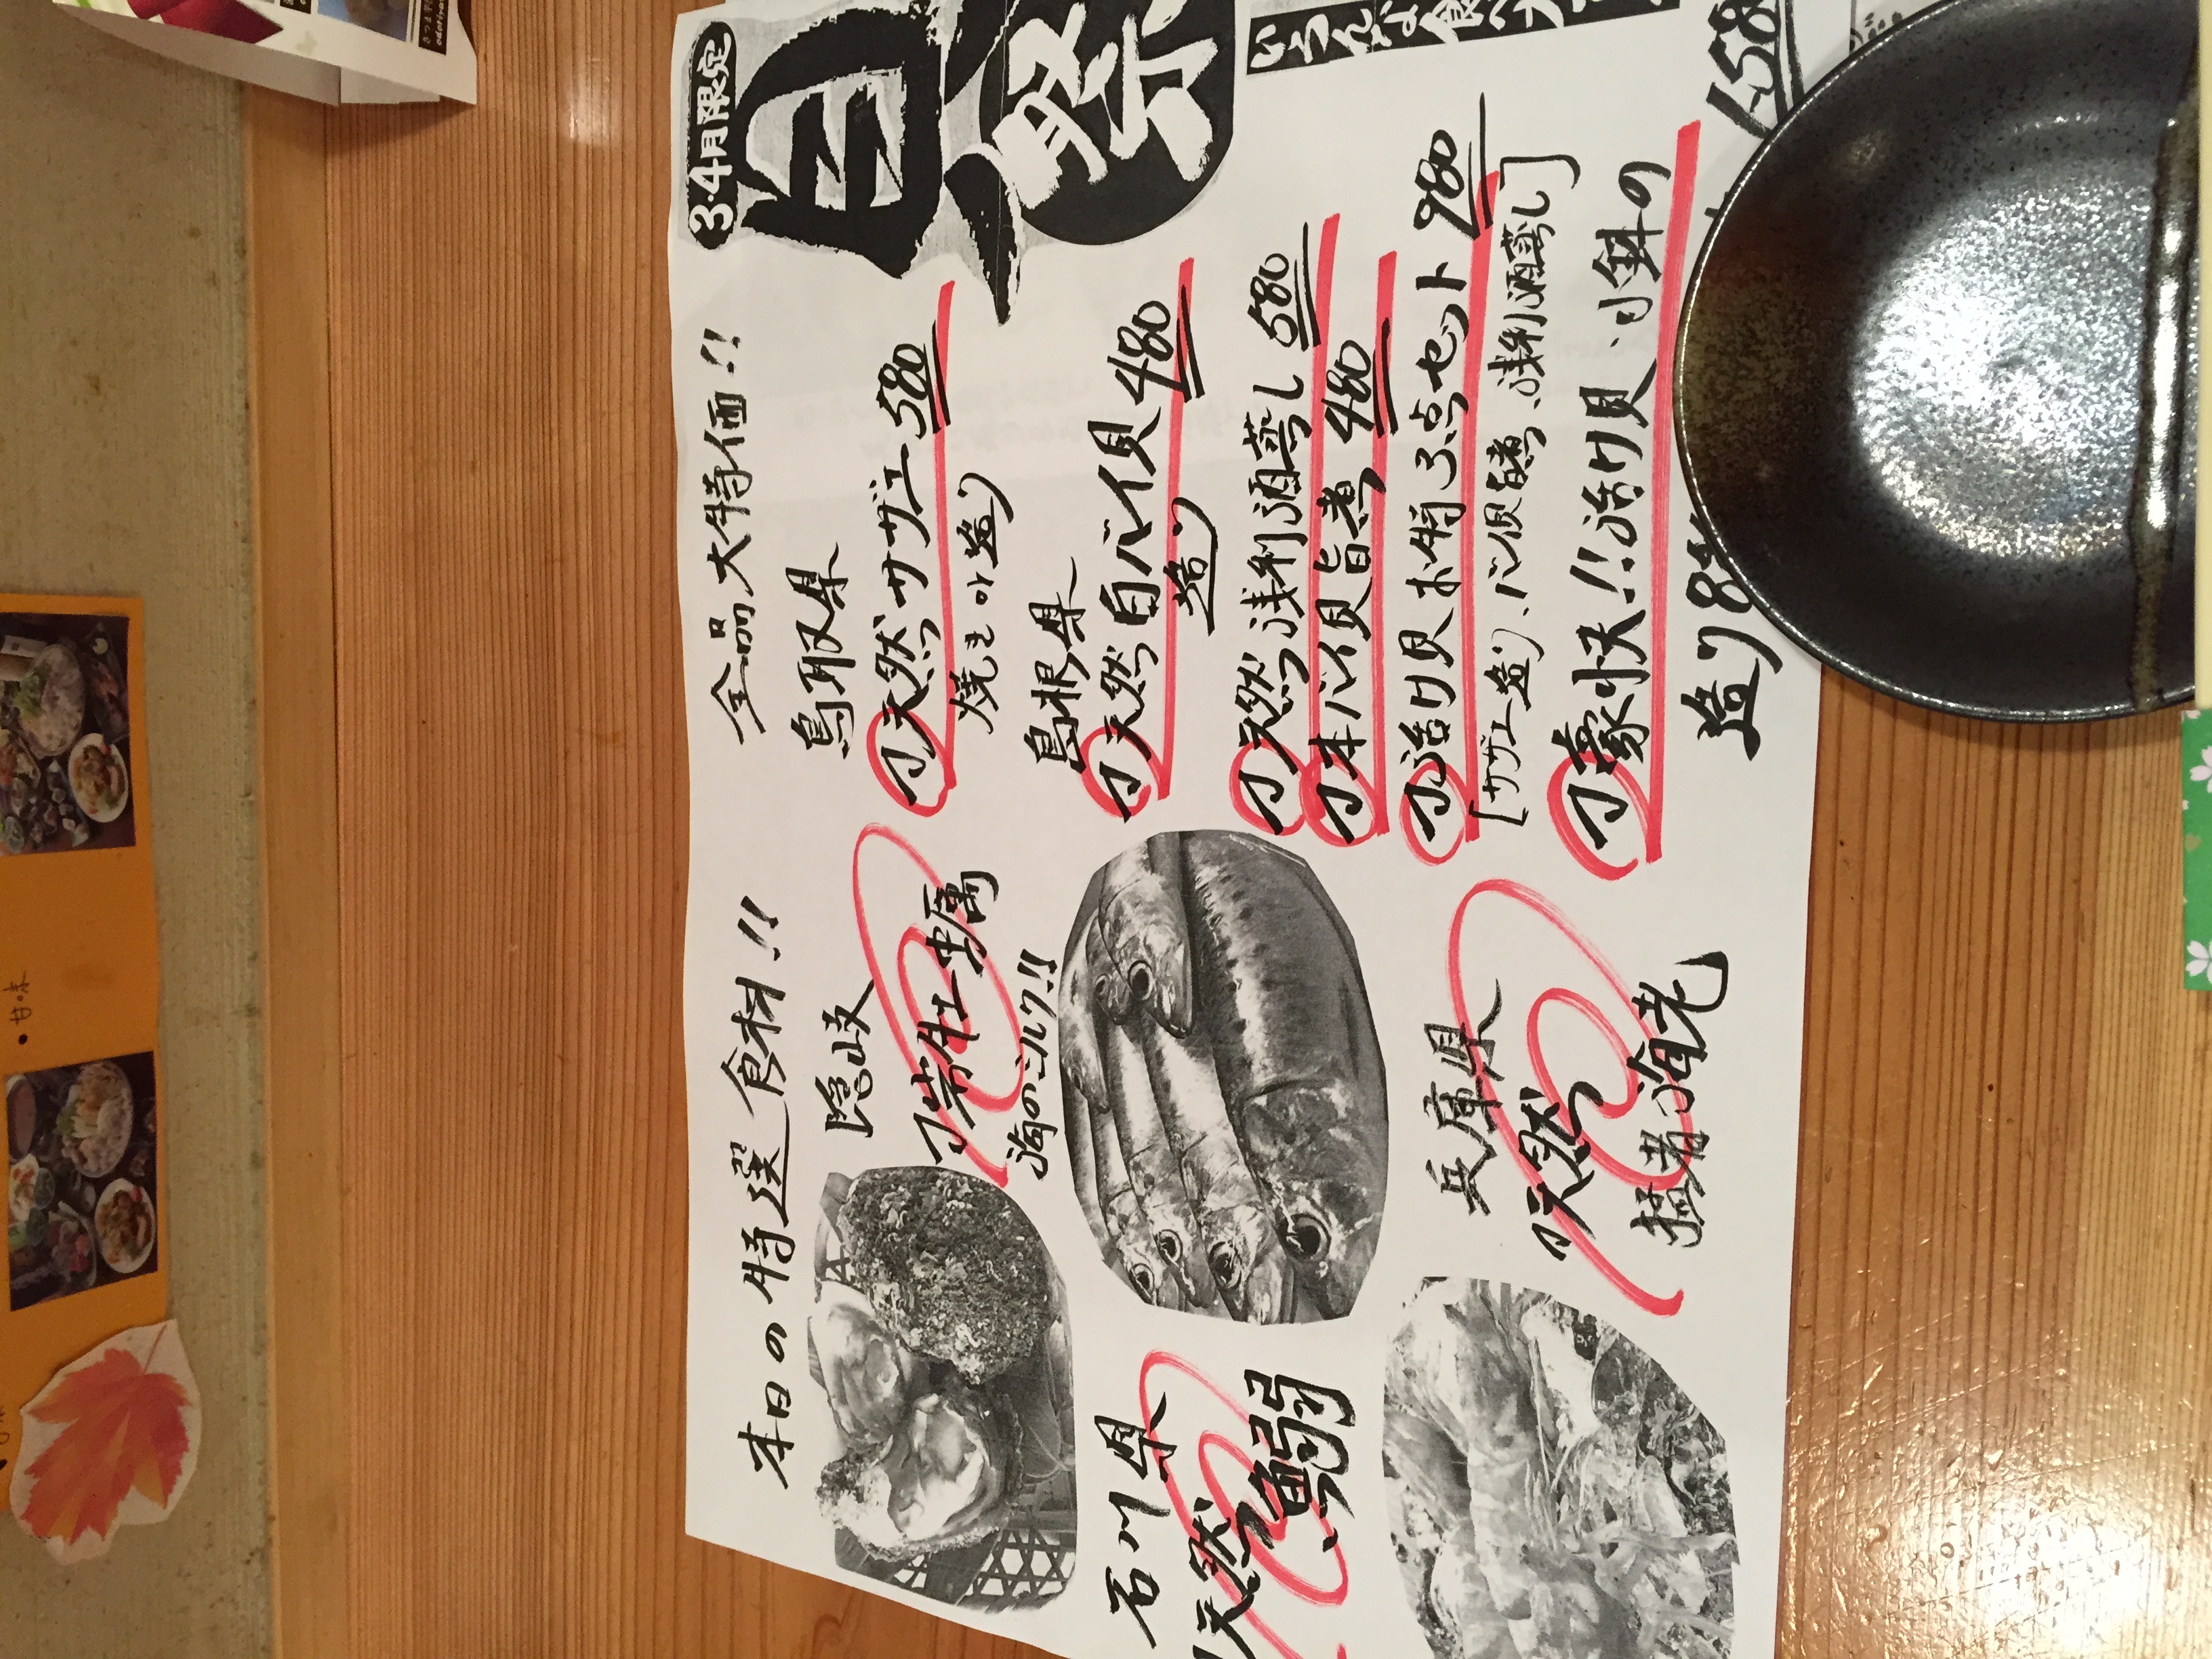 3・4月限定
貝
祭
本日の特選食材!!
隠岐
岩牡蠣
海のミルク!!
石川県
天然
鰯
兵庫県
天然
猛者海老
全品大特価!!
鳥取県
天然サザエ 580
焼きor造り
島根県
天然白バイ貝 480
造り
天然浅利酒蒸し 580
本バイ貝旨煮 480
活け貝お得3点セット 980
[サザエ造り、バイ貝旨煮、浅利酒蒸し]
豪快!!活け貝
造り
・甘味